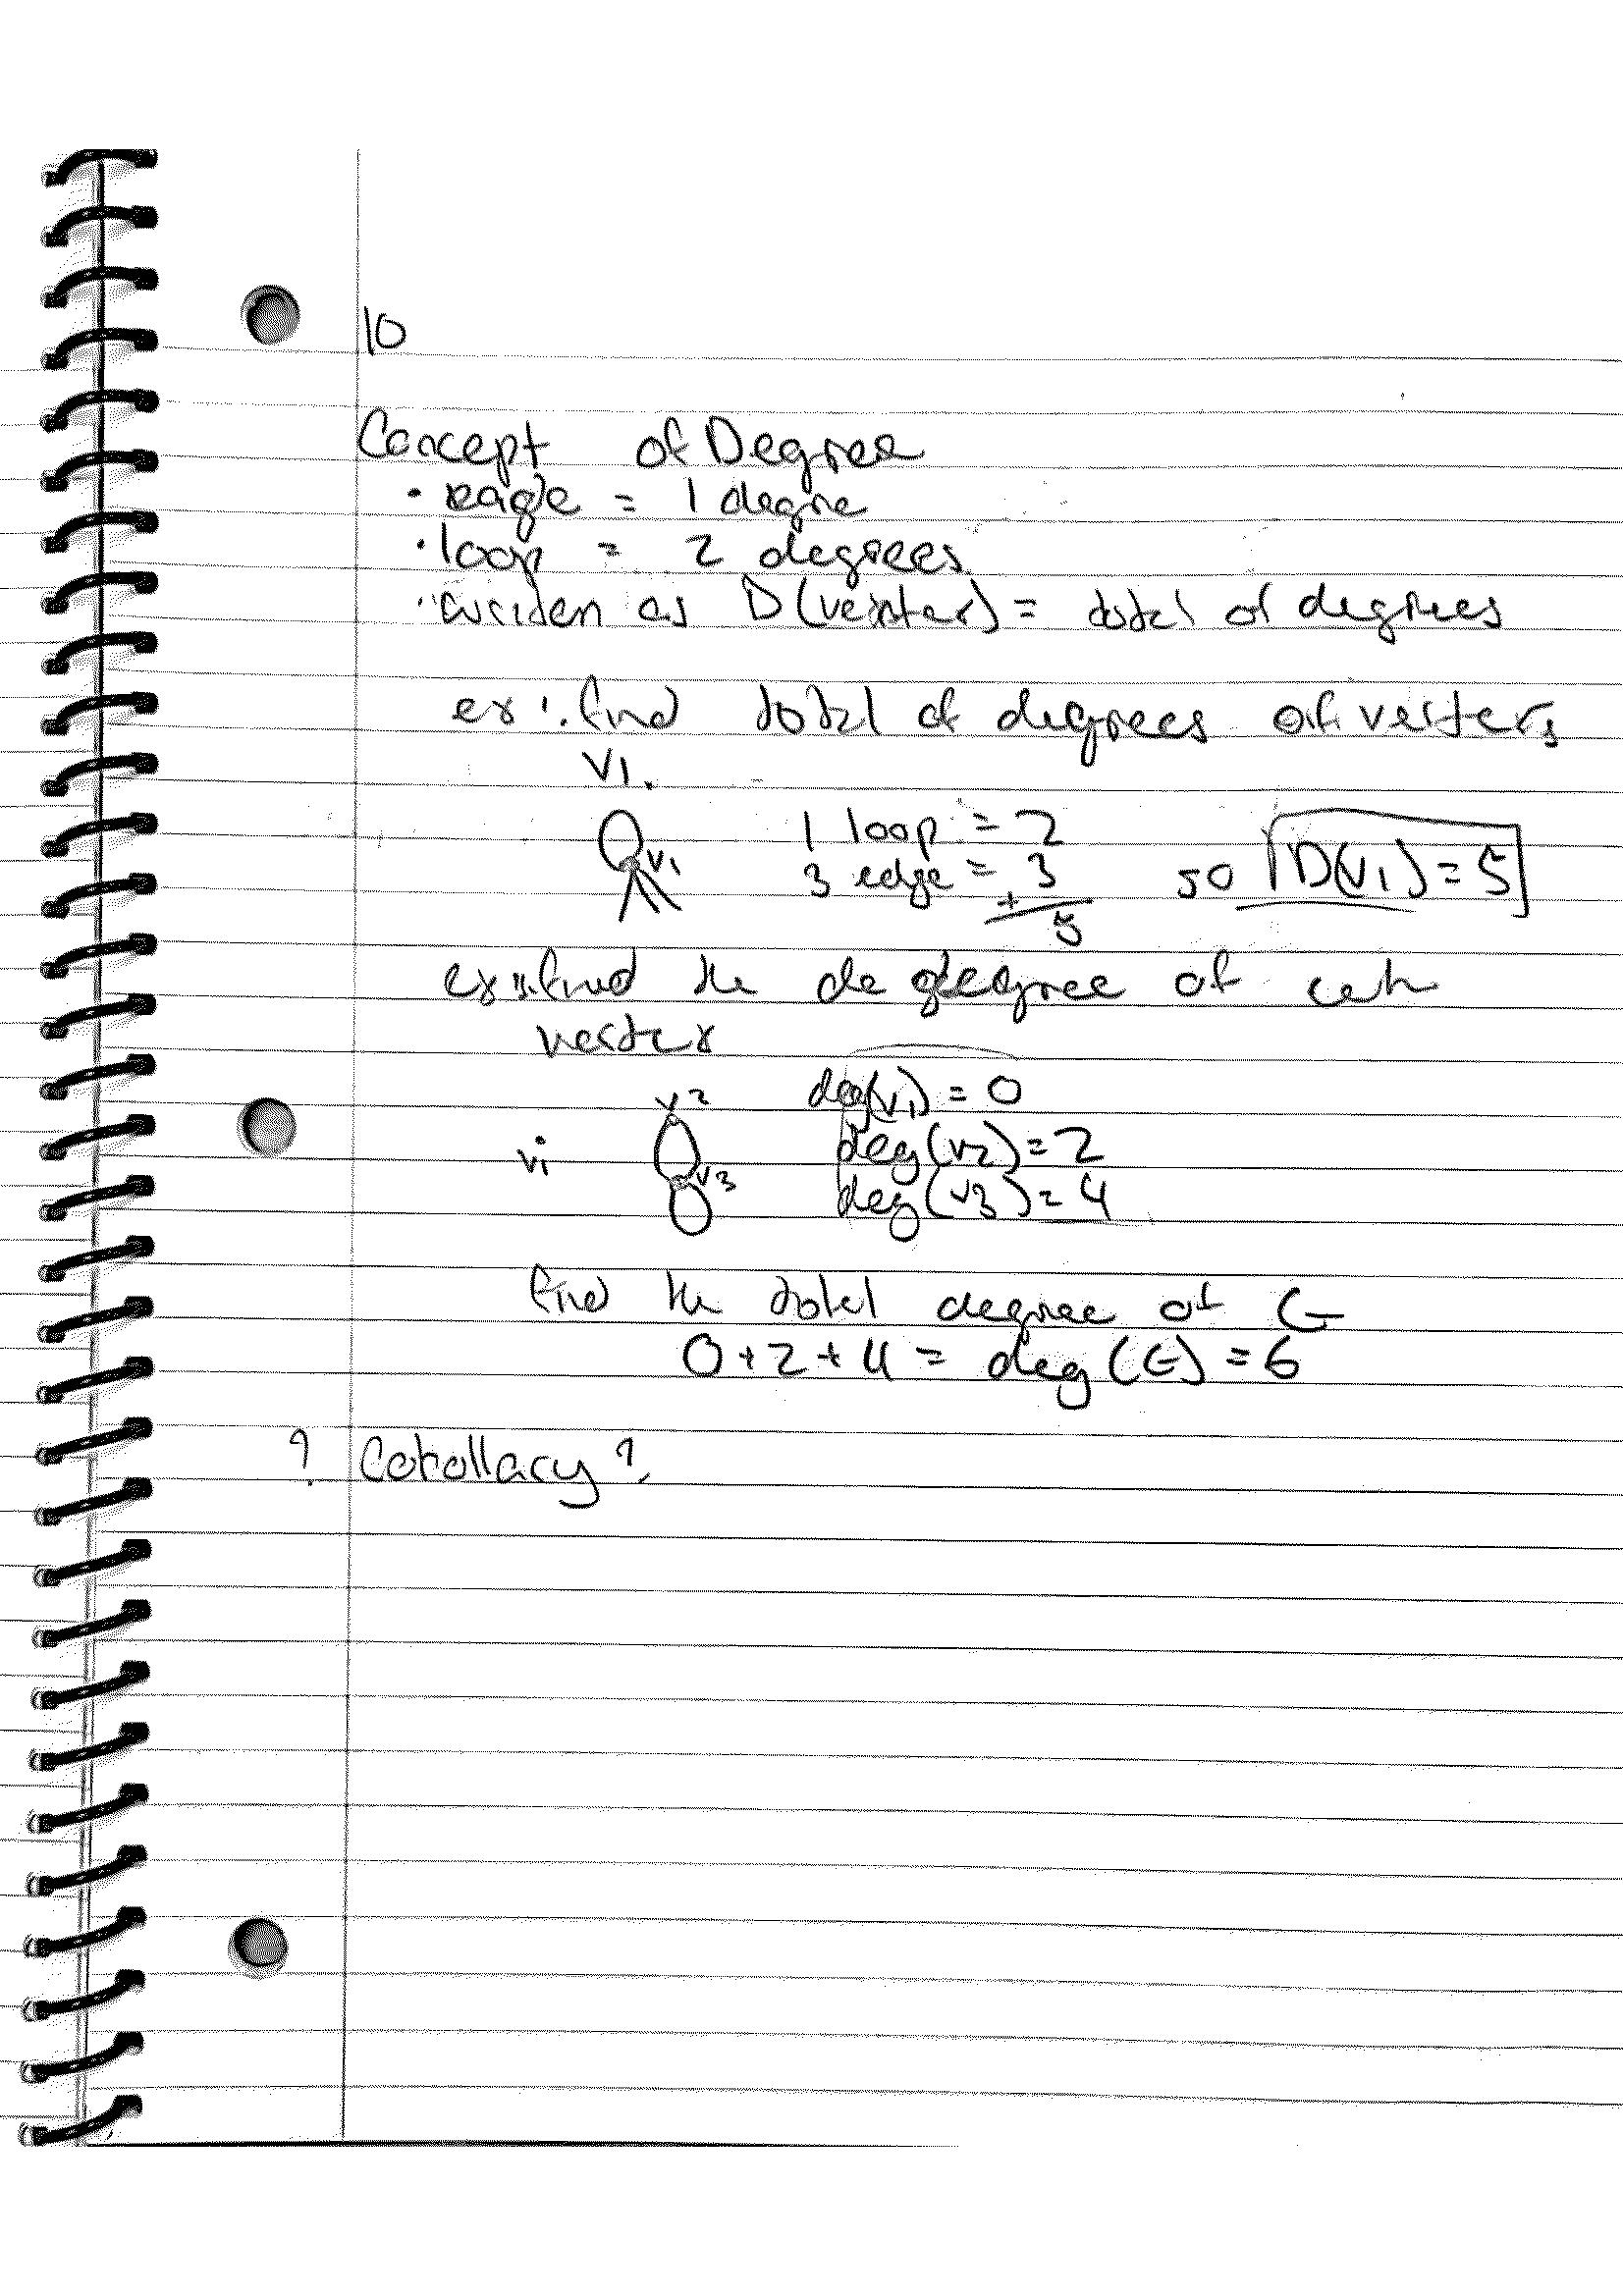 10
Concept of Degree
• eagle = 1 degre
• loop = 2 degrees
• as D(veinter) = total of degrees
ex: find total of degrees of verters
V1.
V1 1 loop = 2
3 edge = 3 so D(V1) = 5
+
5
ex: find the de degree of
vertex
V2 deg(V1) = 0
V1 deg(V2) = 2
V3 deg(V3) = 4
find the total degree of G
0 + 2 + 4 = deg(G) = 6
? Corollary ?